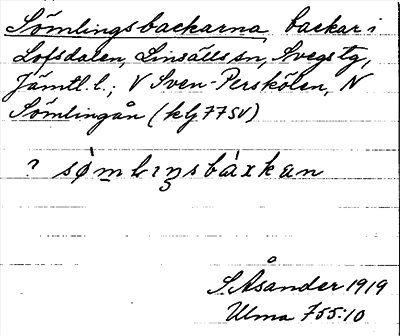 Sömlingsbackarna, backar i
Lofsdalen, Linsälls sn, Svegs tg,
Jämtl. l.; V Sven-Perskölen, N
Sömlingån (kbj 77 SV)
? sø̀mlıŋsbàxkan
S Åsander 1919
Ulma 755:10